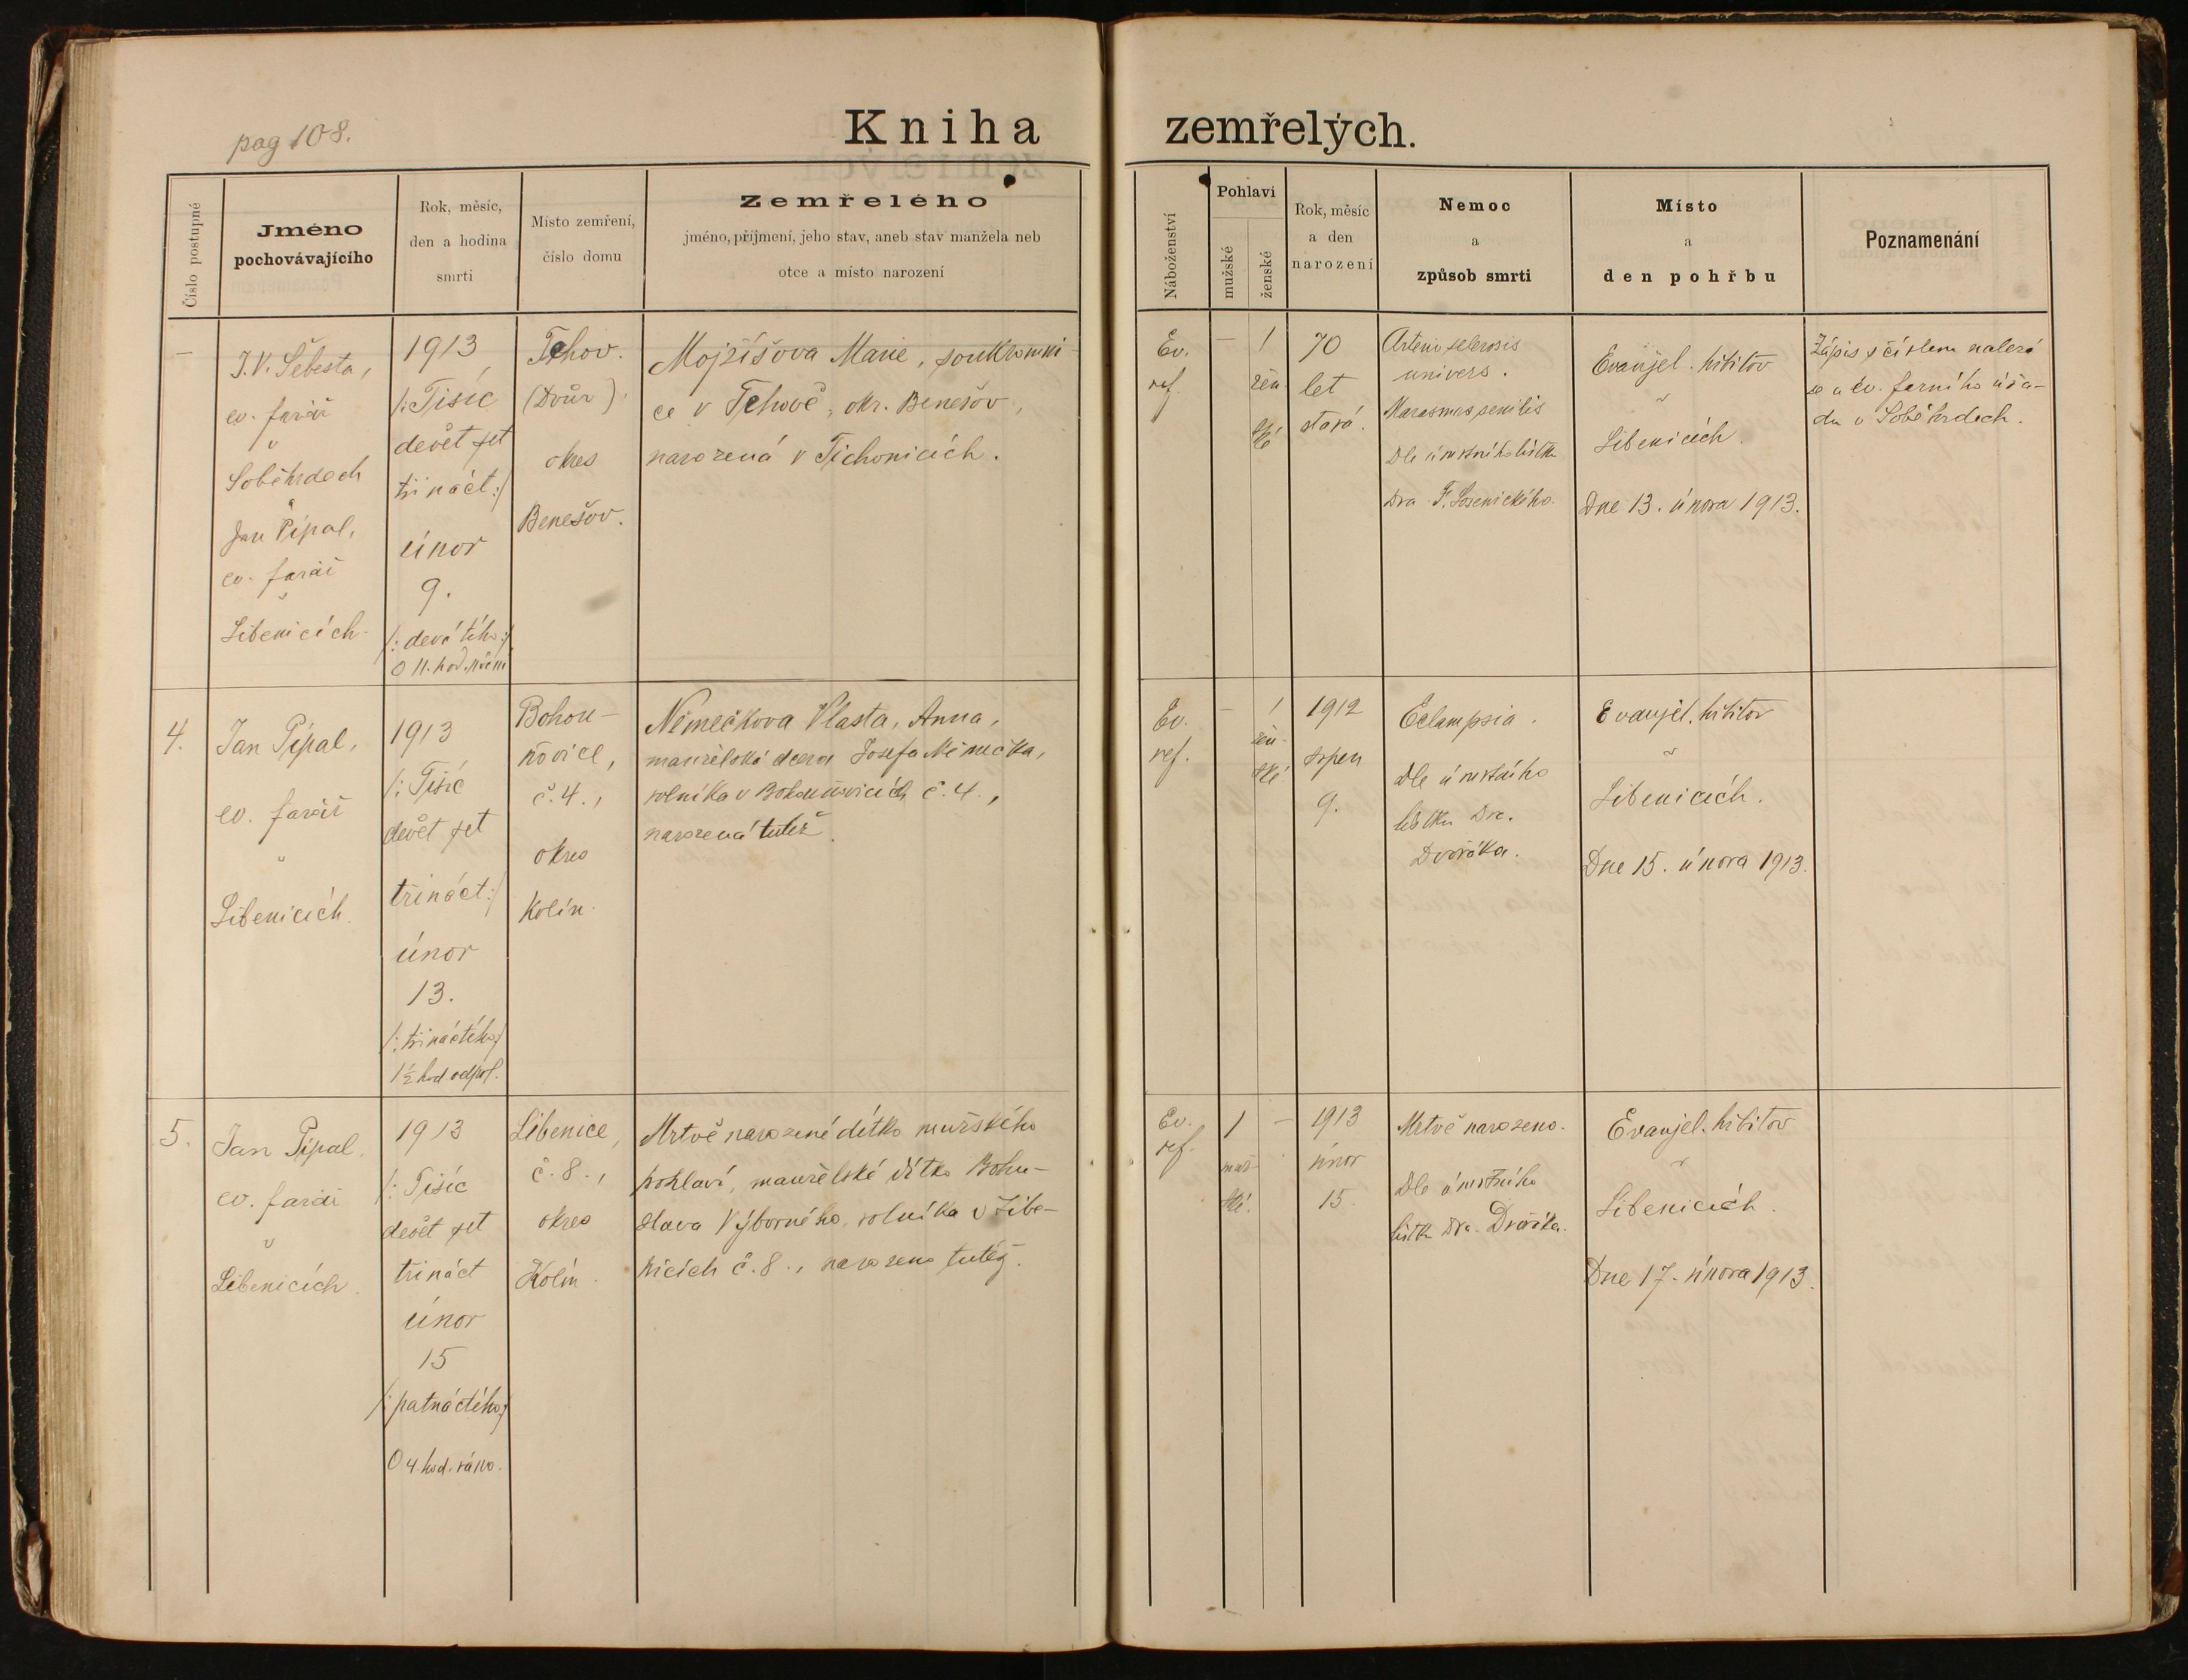 pag 108.
Kniha zemřelých.
Číslo postupné
Jméno
pochovávajícího
Rok, měsíc,
den a hodina
smrti
Místo zemření,
číslo domu
Zemřelého
jméno, příjmení, jeho stav, aneb stav manžela neb
otce a místo narození
Náboženství
Pohlaví
mužské
ženské
Rok, měsíc
a den
narození
Nemoc
a
způsob smrti
Místo
a
den pohřbu
Poznamenání
—
J. V. Šebesta,
ev. farář
v
Soběhrdech
a
Jan Pípal,
ev. farář
v
Libenicích
1913
/: Tisíc
devět set
třináct :/
únor
9.
/: devátého :/
o 11. hod. noční
Tehov.
(Dvůr).
okres
Benešov.
Mojžíšova Marie, soukromni-
ce v Tehově, okr. Benešov,
narozená v Tichonicích.
Ev.
ref.
—
1
žen-
ské
70
let
stará.
Arteriosclerosis
univers.
Marasmus senilis
Dle úmrtního lístku
Dra F. Losenického.
Evanjel. hřbitov
v
Libenicích.
Dne 13. února 1913.
Zápis s číslem nalezá
se u ev. farního úřa-
du v Soběhrdech.
4.
Jan Pípal,
ev. farář
v
Libenicích.
1913
/: Tisíc
devět set
třináct :/
únor
13.
/: třináctého :/
1½ hod. odpol.
Bohou-
ňovice,
č. 4.,
okres
Kolín.
Němečkova Vlasta, Anna,
manželská dcera Josefa Němečka,
rolníka v Bohouňovicích č. 4.,
narozená tutéž.
Ev.
ref.
—
1
žen-
ské
1912
srpen
9.
Eclampsia.
Dle úmrtního
lístku Dra.
Dvořáka.
Evanjel. hřbitov
v
Libenicích.
Dne 15. února 1913.
5.
Jan Pípal,
ev. farář
v
Libenicích.
1913
/: Tisíc
devět set
třináct
únor
15
/: patnáctého :/
O 4. hod. ráno.
Libenice,
č. 8.,
okres
Kolín.
Mrtvě narozené dítko mužského
pohlaví, manželské dítko Bohu-
slava Výborného, rolníka v Libe-
nicích č. 8., narozeno tutéž.
Ev.
ref.
1
muž-
ské.
—
1913
únor
15.
Mrtvě narozeno.
Dle úmrtního
lístku Dra. Dvořáka.
Evanjel. hřbitov
v
Libenicích.
Dne 17. února 1913.